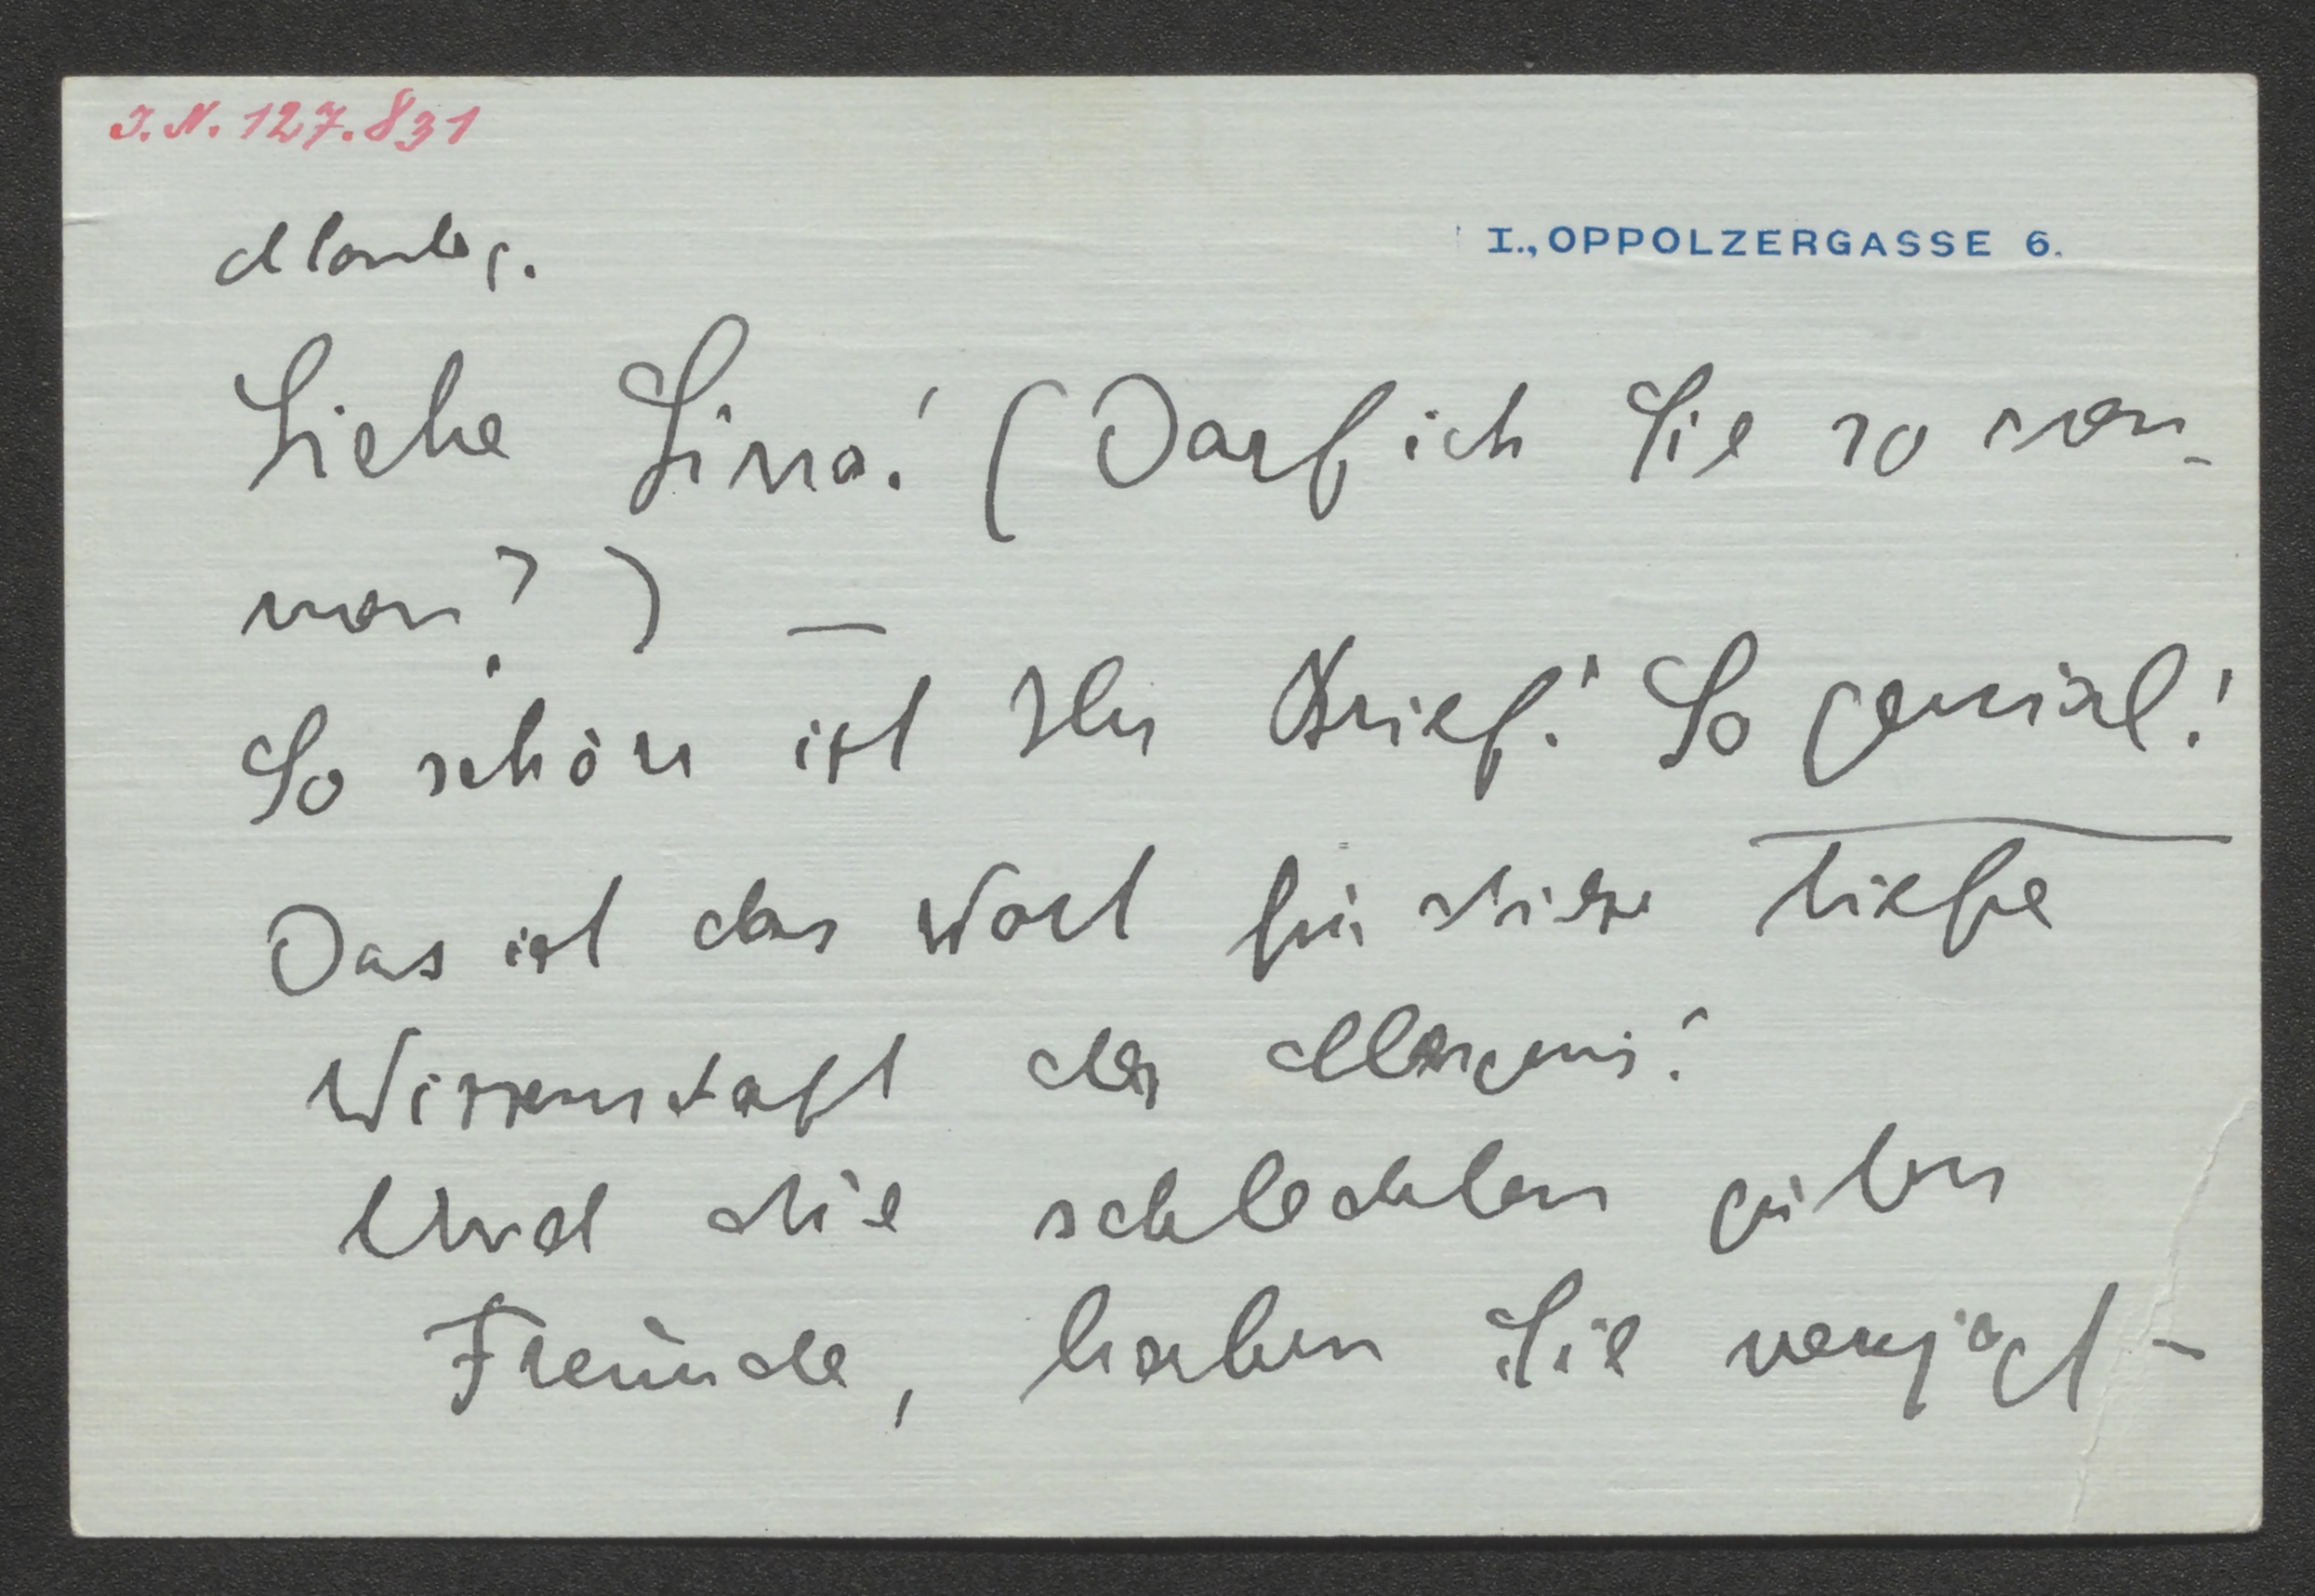 J.N. 127.831
I., OPPOLZERGASSE 6.
Montag.
Liebe Lina! (Darf ich Sie so nen-
nen?) —
So schön ist Ihr Brief! So genial!
Das ist das Wort für diese tiefe
Wissenschaft des
Und die schlechten guten
Freunde, haben Sie verjagt –